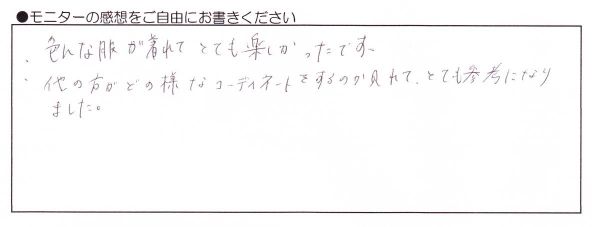 ●モニターの感想をご自由にお書きください
・色んな服が着れてとても楽しかったです。
・他の方がどの様なコーディネートをするのか見れて、とても参考になり
ました。